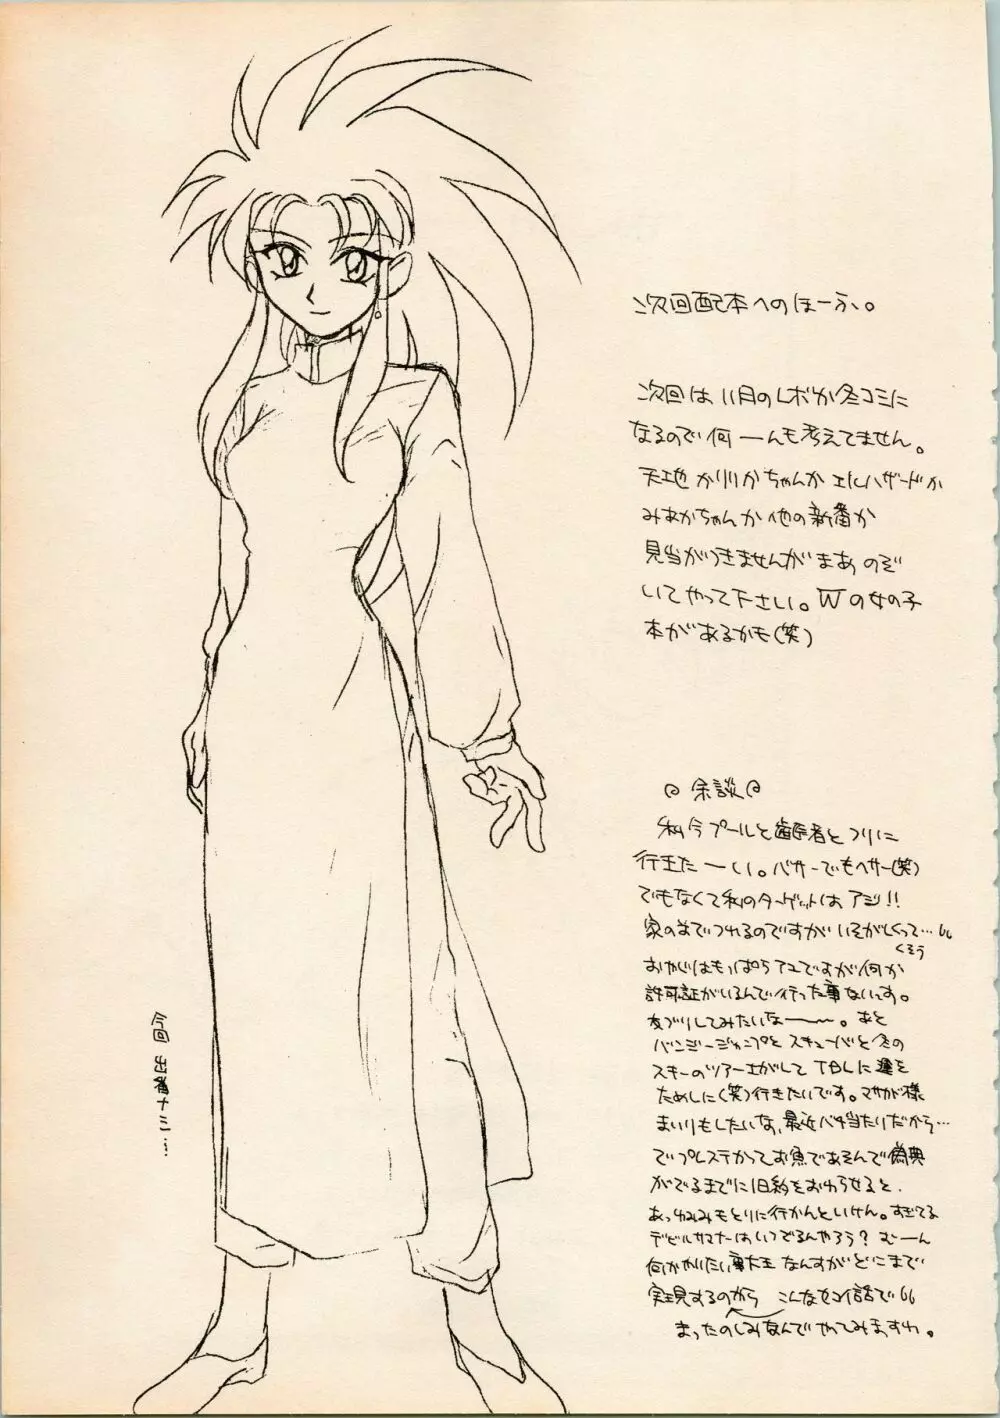 次回配本へのほーふ。
次回は11月のレボか冬コミに
なるので何ーんも考えてません。
天地かリリかちゃんかエルハザードか
みあかちゃんか他の新番か
見当がつきませんがまあのぞ
いてやって下さい。Wの女の子
本があるかも(笑)
余談
私今プールと歯医者とつりに
行きたーい。バサーでもヘサー(笑)
でもなくて私のターゲットはアジ!!
家の前でつれるのですがいそがしくって…
くそう
おやじはもっぱらアユですが何か
許可証がいるんで行った事ないっす。
友づりしてみたいなー〜。あと
バンジージャンプとスキューバと冬の
スキーのツアーさがしてTBLに運を
ためしに(笑)行きたいです。マサカド様
まいりもしたいな、最近バチ当たりだから…
でプレステかってお魚であそんで偽典
がでるまでに旧約をおわらせると、
あっ、ねみもとりに行かんといけん。すぎてる
デビルサマナーはいつでるんやろう?むーん
何かやりたい事大王なんすがどこまで
実現するのかこんな女の話で
まったのしみなんでやってみますわ。
今回出番ナシ…